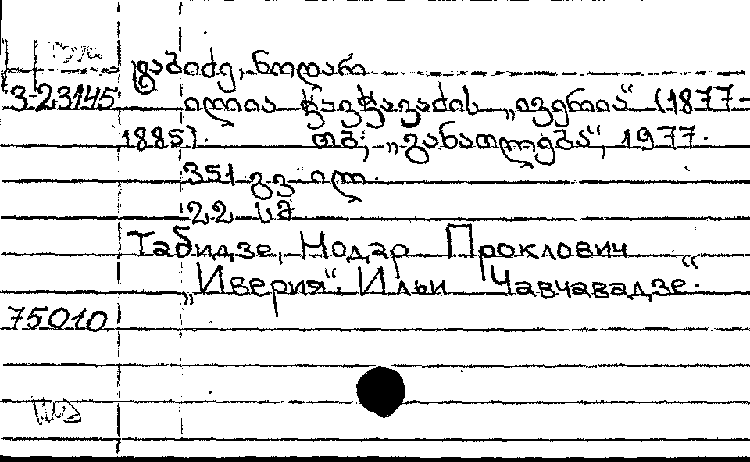 ტაბიძე, ნოდარ
3-23145 ილია ჭავჭავაძის „ივერია“ (1877-
1885). თბ; „განათლება“, 1977.
351 გვ ილ.
22 სმ
Табидзе, Нодар Проклович
„Иверия“. Ильи Чавчавадзе“.
75010